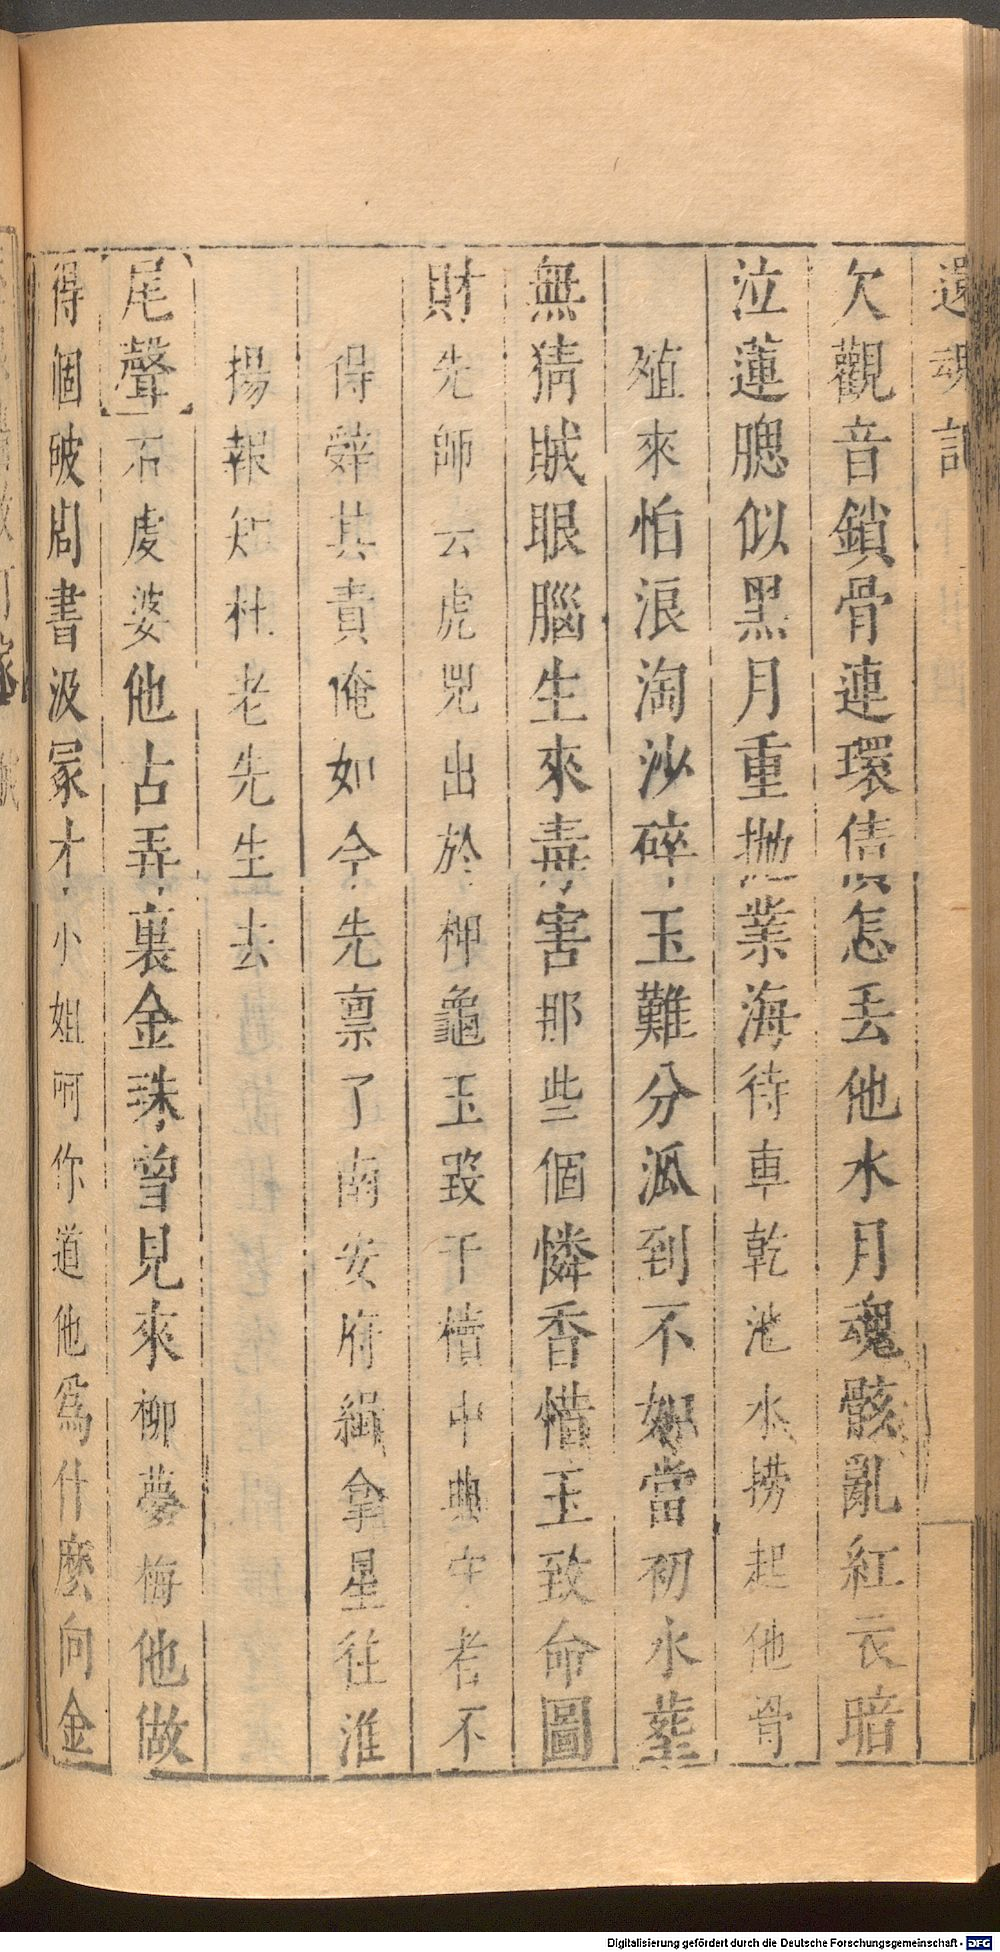 還魂記
欠觀音鎖骨連環債怎丟他水月魂骸亂紅衣暗
泣蓮腮似黑月重拋業海待車乾池水撈起他骨
殖來怕浪淘沙碎玉難分派到不如當初水葬
無猜賊眼腦生來毒害那些個憐香惜玉致命圖
財先師云虎兕出於柙龜玉毀于櫝中典守者不
得辭其責俺如今先禀了南安府緝拿星往淮
揚報知杜老先生去
尾聲石虔婆他占弄裏金珠曾見來柳夢梅他做
得個破周書汲冢才小姐呵你道他為什麽向金
Digitalisierung gefördert durch die Deutsche Forschungsgemeinschaft - DFG